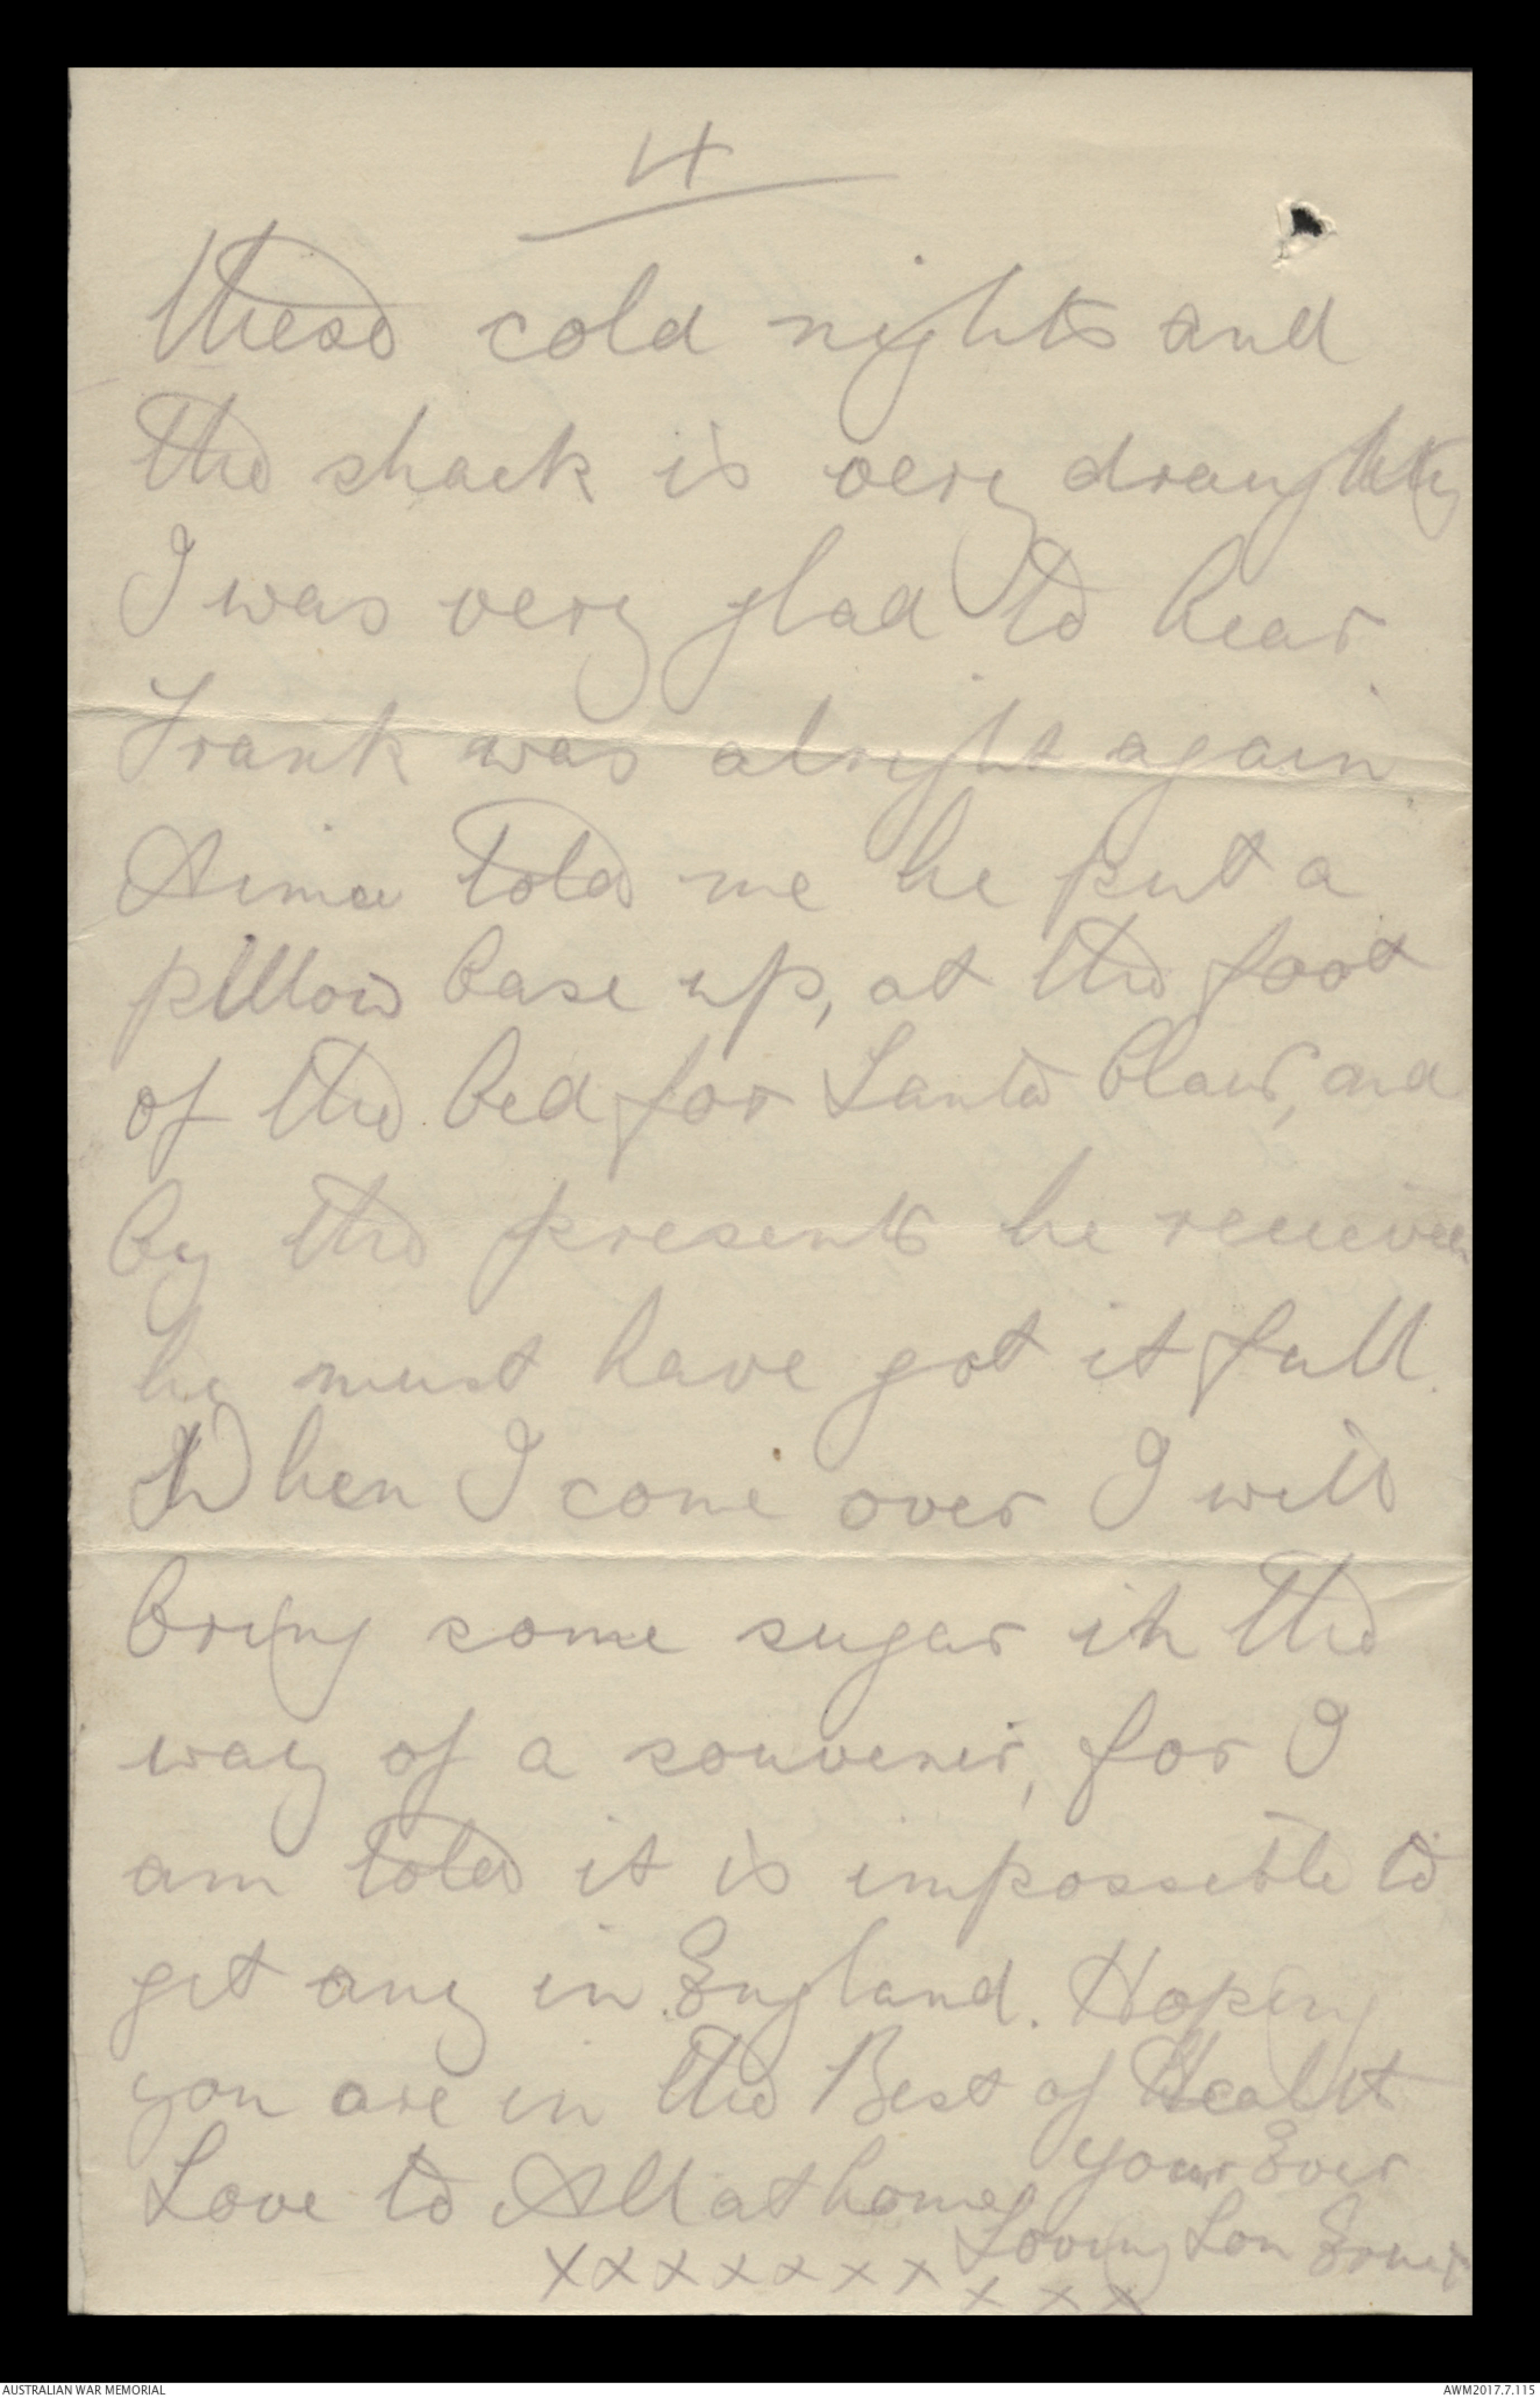 4
these cold nights and
the shack is very draughty
I was very glad to hear
Frank was alright again.
Aimee told me he put a
pillow case up, at the foot
of the bed for Santa Claus, and
by the presents he received
he must have got it full.
When I come over I will
bring some sugar in the
way of a souvenir, for I
am told it is impossible to
get any in England. Hoping
you are in the Best of Health
Love to All at home your Ever
Loving Son Ernest
xxxxxxxx
xxx
AUSTRALIAN WAR MEMORIAL
AWM2017.7.115